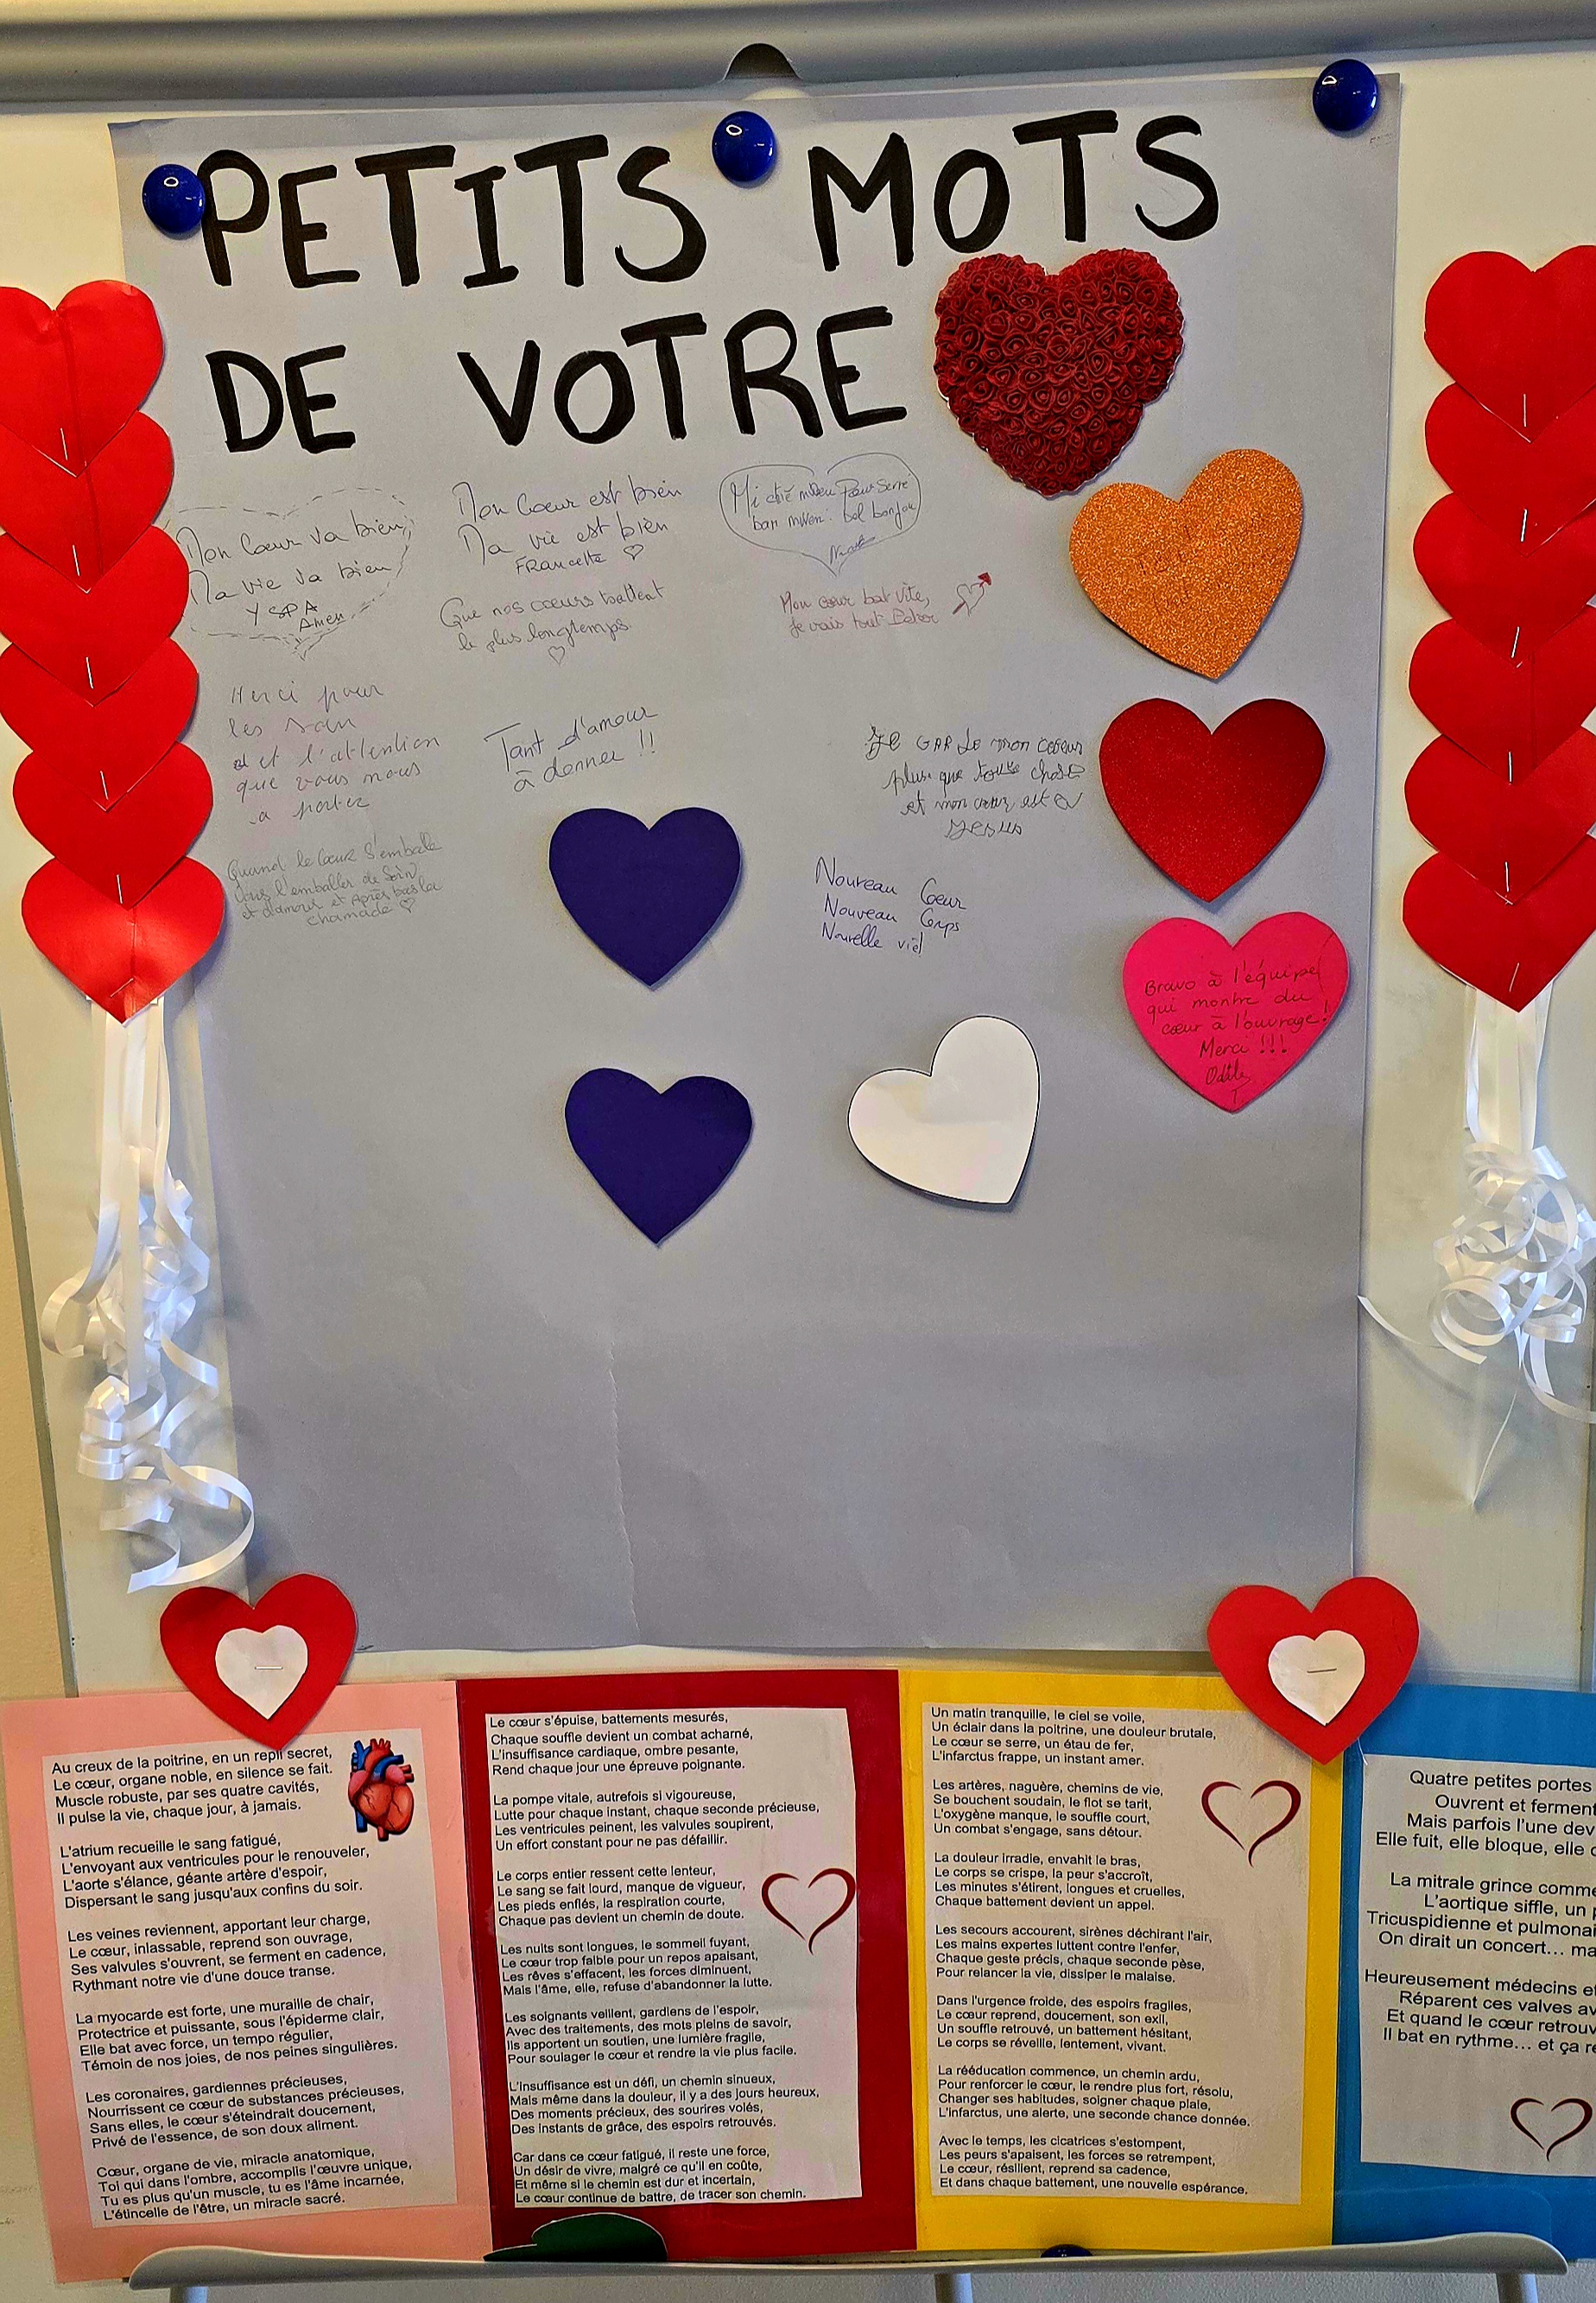 PETITS MOTS
DE VOTRE
Mon Cœur va bien,
Ma vie va bien
Y SPA
Amen
Mon Cœur est bien
Ma vie est bien
FRancette
bon bonjou
Que nos cœurs battent
le plus longtemps.
Mon cœur bat vite,
Je vais tout
Merci pour
les soin
et l'attention
que vous nous
a portez
Tant d'amour
à donner !!
JE GARde mon cœur
plus que toute chose
et mon cœur est a
Jesus
Quand le Cœur s'emballe
l'emballer de Soin
et d'amour et Après bas la
chamade
Nouveau Cœur
Nouveau Corps
Nouvelle vie!
Bravo à l'équipe
qui montre du
cœur à l'ouvrage!
Merci !!!
Odile
Au creux de la poitrine, en un repli secret,
Le cœur, organe noble, en silence se fait.
Muscle robuste, par ses quatre cavités,
Il pulse la vie, chaque jour, à jamais.
L'atrium recueille le sang fatigué,
L'envoyant aux ventricules pour le renouveler,
L'aorte s'élance, géante artère d'espoir,
Dispersant le sang jusqu'aux confins du soir.
Les veines reviennent, apportant leur charge,
Le cœur, inlassable, reprend son ouvrage,
Ses valvules s'ouvrent, se ferment en cadence,
Rythmant notre vie d'une douce transe.
La myocarde est forte, une muraille de chair,
Protectrice et puissante, sous l'épiderme clair,
Elle bat avec force, un tempo régulier,
Témoin de nos joies, de nos peines singulières.
Les coronaires, gardiennes précieuses,
Nourrissent ce cœur de substances précieuses,
Sans elles, le cœur s'éteindrait doucement,
Privé de l'essence, de son doux aliment.
Cœur, organe de vie, miracle anatomique,
Toi qui dans l'ombre, accomplis l'œuvre unique,
Tu es plus qu'un muscle, tu es l'âme incarnée,
L'étincelle de l'être, un miracle sacré.
Le cœur s'épuise, battements mesurés,
Chaque souffle devient un combat acharné,
L'insuffisance cardiaque, ombre pesante,
Rend chaque jour une épreuve poignante.
La pompe vitale, autrefois si vigoureuse,
Lutte pour chaque instant, chaque seconde précieuse,
Les ventricules peinent, les valvules soupirent,
Un effort constant pour ne pas défaillir.
Le corps entier ressent cette lenteur,
Le sang se fait lourd, manque de vigueur,
Les pieds enflés, la respiration courte,
Chaque pas devient un chemin de doute.
Les nuits sont longues, le sommeil fuyant,
Le cœur trop faible pour un repos apaisant,
Les rêves s'effacent, les forces diminuent,
Mais l'âme, elle, refuse d'abandonner la lutte.
Les soignants veillent, gardiens de l'espoir,
Avec des traitements, des mots pleins de savoir,
Ils apportent un soutien, une lumière fragile,
Pour soulager le cœur et rendre la vie plus facile.
L'insuffisance est un défi, un chemin sinueux,
Mais même dans la douleur, il y a des jours heureux,
Des moments précieux, des sourires volés,
Des instants de grâce, des espoirs retrouvés.
Car dans ce cœur fatigué, il reste une force,
Un désir de vivre, malgré ce qu'il en coûte,
Et même si le chemin est dur et incertain,
Le cœur continue de battre, de tracer son chemin.
Un matin tranquille, le ciel se voile,
Un éclair dans la poitrine, une douleur brutale,
Le cœur se serre, un étau de fer,
L'infarctus frappe, un instant amer.
Les artères, naguère, chemins de vie,
Se bouchent soudain, le flot se tarit,
L'oxygène manque, le souffle court,
Un combat s'engage, sans détour.
La douleur irradie, envahit le bras,
Le corps se crispe, la peur s'accroît,
Les minutes s'étirent, longues et cruelles,
Chaque battement devient un appel.
Les secours accourent, sirènes déchirant l'air,
Les mains expertes luttent contre l'enfer,
Chaque geste précis, chaque seconde pèse,
Pour relancer la vie, dissiper le malaise.
Dans l'urgence froide, des espoirs fragiles,
Le cœur reprend, doucement, son exil,
Un souffle retrouvé, un battement hésitant,
Le corps se réveille, lentement, vivant.
La rééducation commence, un chemin ardu,
Pour renforcer le cœur, le rendre plus fort, résolu,
Changer ses habitudes, soigner chaque plaie,
L'infarctus, une alerte, une seconde chance donnée.
Avec le temps, les cicatrices s'estompent,
Les peurs s'apaisent, les forces se retrempent,
Le cœur, résilient, reprend sa cadence,
Et dans chaque battement, une nouvelle espérance.
Quatre petites portes
Ouvrent et ferment
Mais parfois l'une dev
Elle fuit, elle bloque, elle
La mitrale grince comme
L'aortique siffle, un
Tricuspidienne et pulmonai
On dirait un concert… ma
Heureusement médecins et
Réparent ces valves av
Et quand le cœur retrouv
Il bat en rythme… et ça re